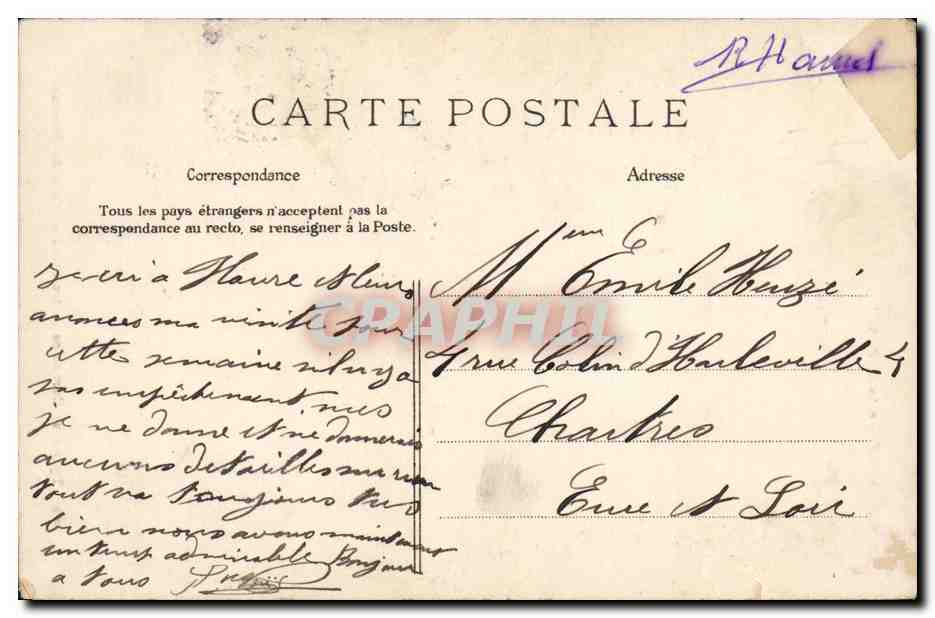 R Hamel
CARTE POSTALE
Correspondance
Tous les pays étrangers n'acceptent pas la
correspondance au recto, se renseigner à la Poste.
a Havre et leurs
anonces ma visite pour
cette semaine sil ny a
pas empêchement mes
je ne donne et ne donnerais
aucuns detailles
tout va toujours tres
bien nous avons maintenant
un temps admirable Bonjour
a tous
Adresse
Mme Emile Heuzé
4 rue Colin d'Harleville 4
Chartres
Eure et Loir
CPAPHIL